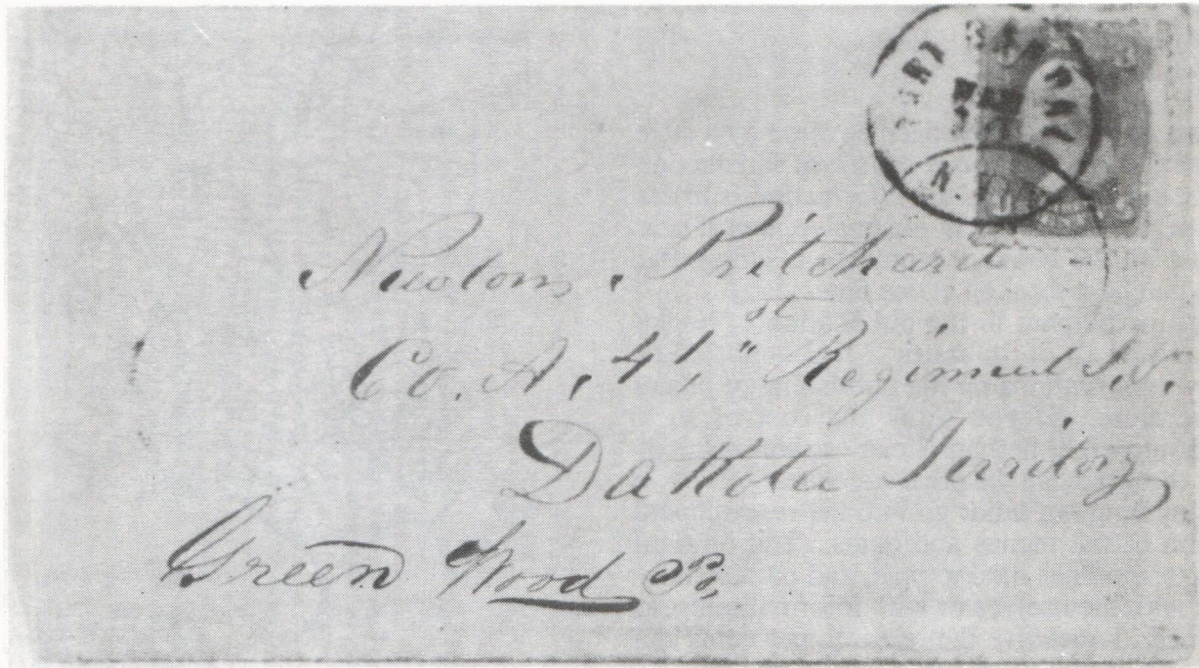 FORT
N.
Newton Pritchard
Co. A, 41,"st Regiment I, V.
Dakota Territory
Green Wood Po,